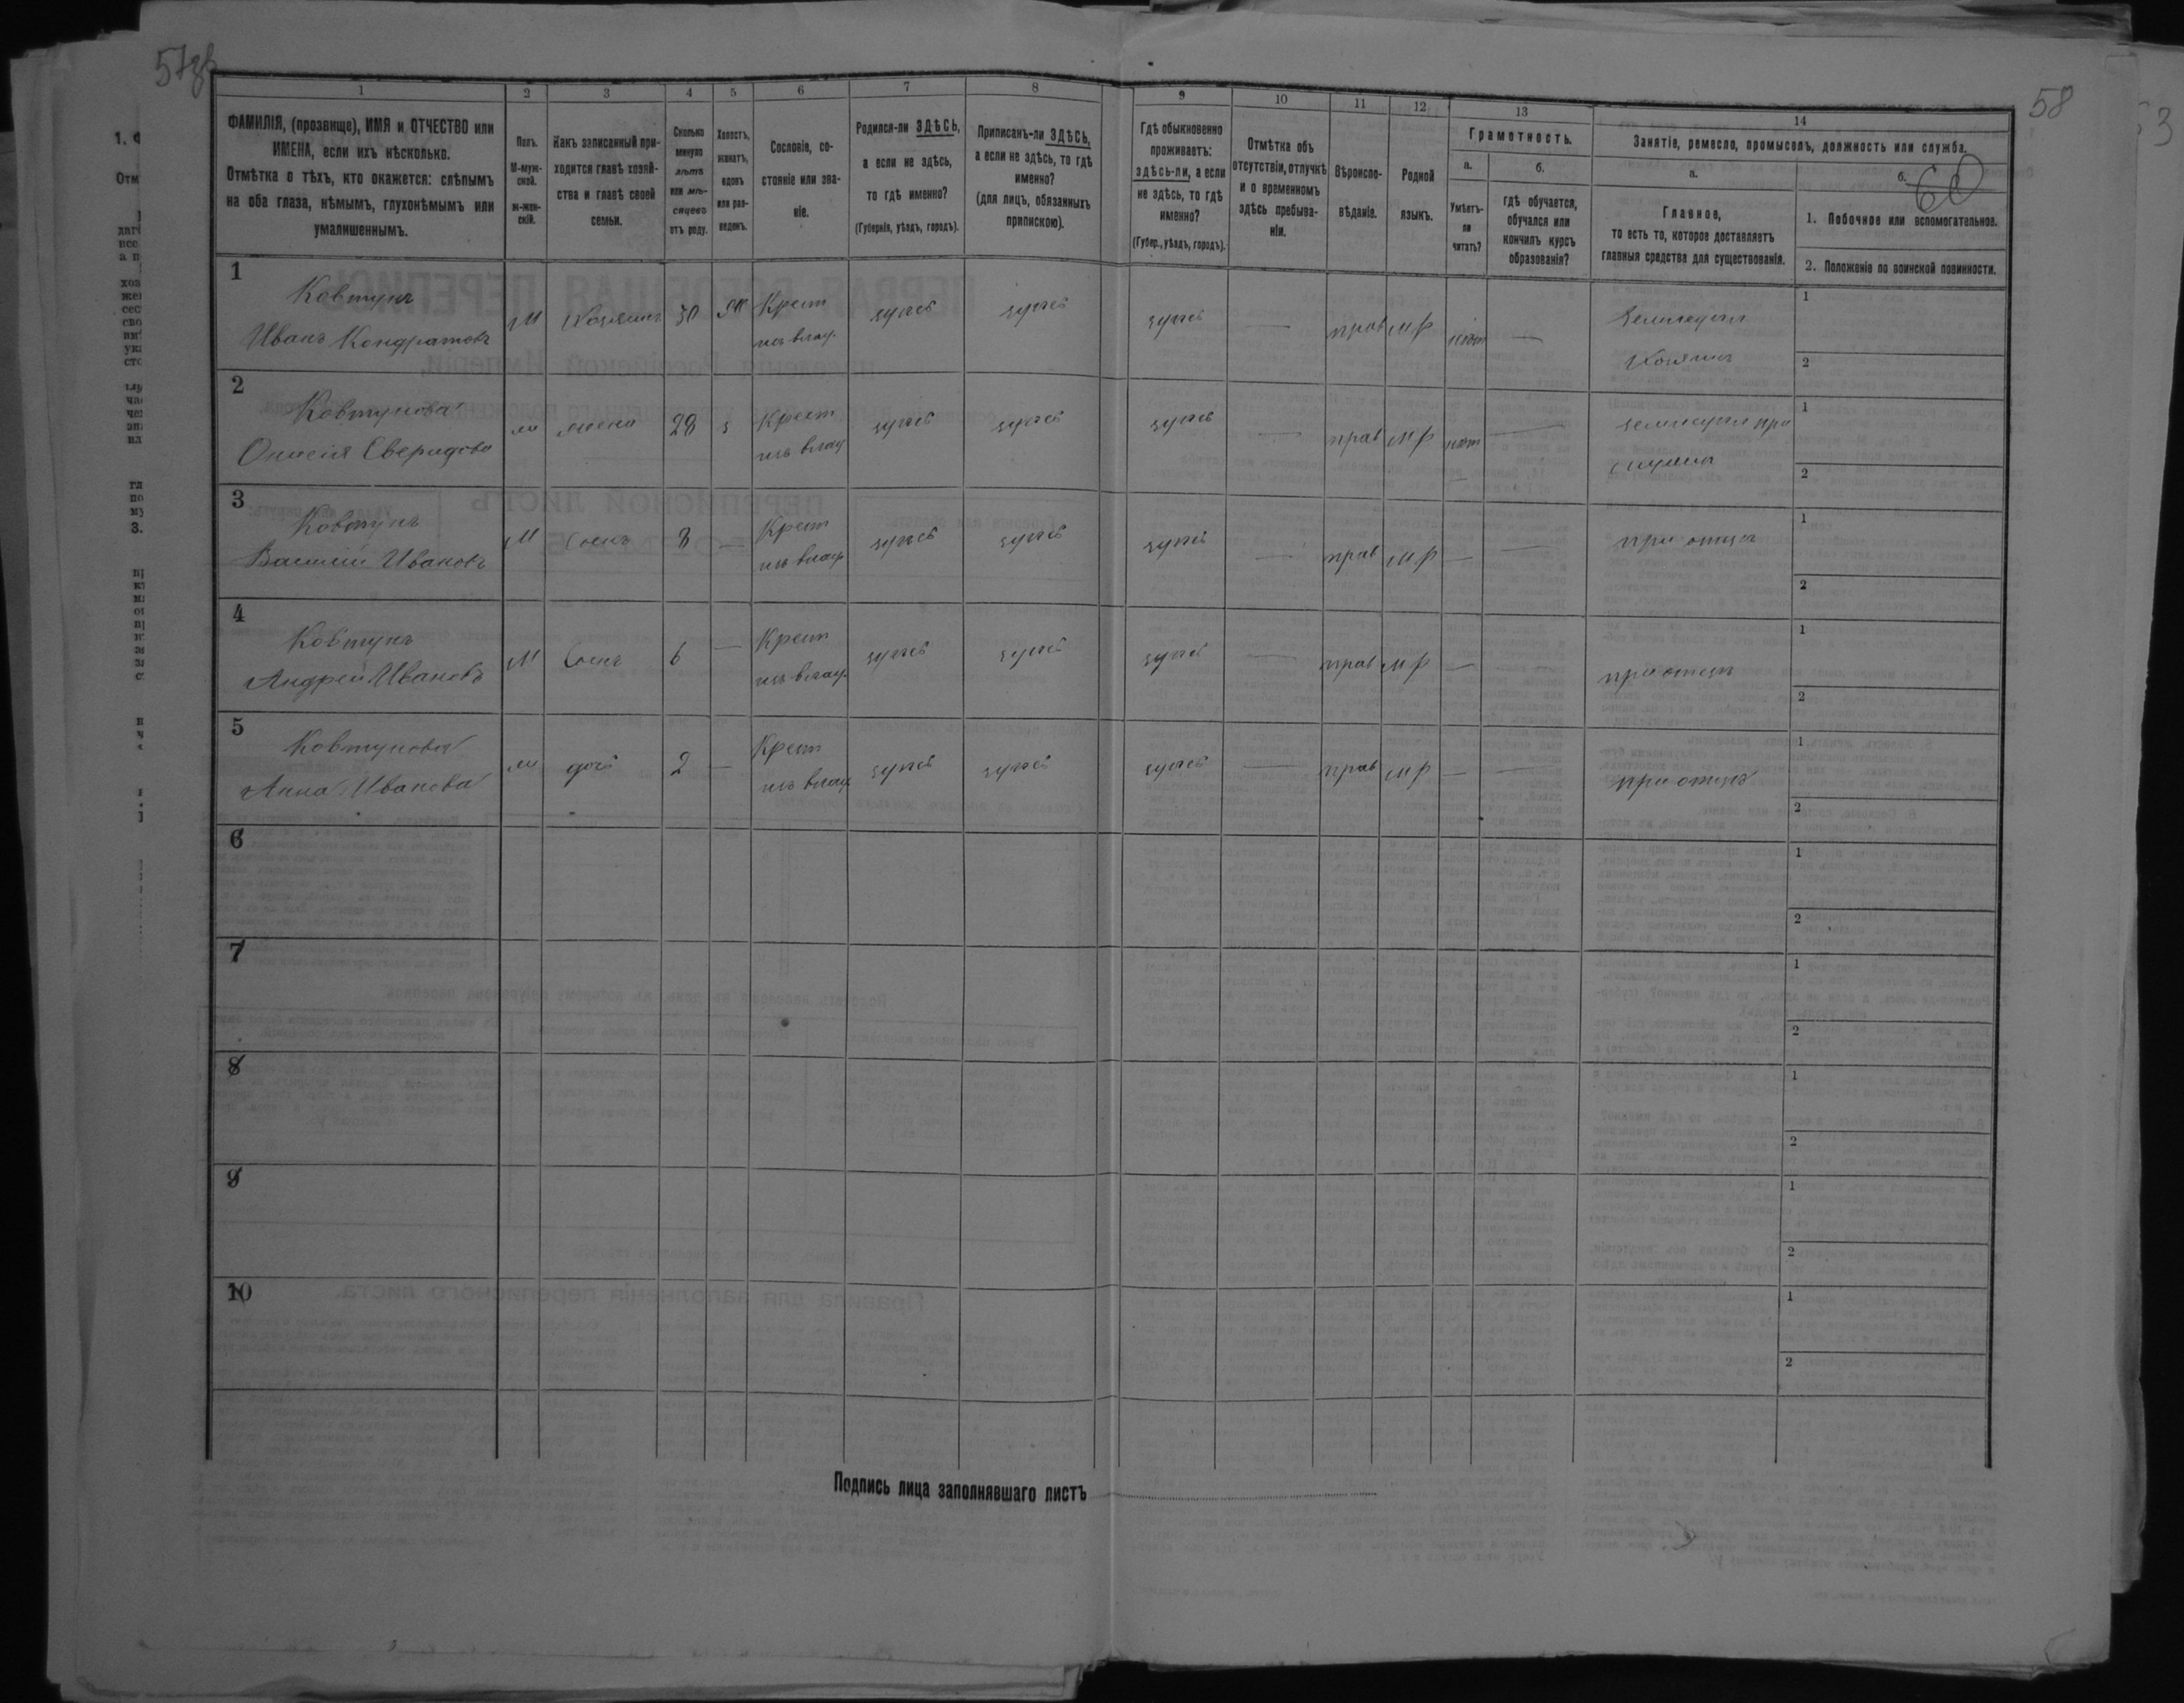 57об
58
53
60
1
ФАМИЛІЯ, (прозвище), ИМЯ и ОТЧЕСТВО или
ИМЕНА, если ихъ нѣсколько.
Отмѣтка о тѣхъ, кто окажется: слѣпымъ
на оба глаза, нѣмымъ, глухонѣмымъ или
умалишеннымъ.
2
Полъ.
М-муж-
ской.
ж-жен-
скій.
3
Какъ записанный при-
ходится главѣ хозяй-
ства и главѣ своей
семьи.
4
Сколько
минуло
лѣтъ
или мѣ-
сяцевъ
отъ роду.
5
Холостъ,
женатъ,
вдовъ
или раз-
веденъ.
6
Сословіе, со-
стояніе или зва-
ніе.
7
Родился-ли ЗДѢСЬ,
а если не здѣсь,
то гдѣ именно?
(Губернія, уѣздъ, городъ).
8
Приписанъ-ли ЗДѢСЬ,
а если не здѣсь, то гдѣ
именно?
(для лицъ, обязанныхъ
припискою).
9
Гдѣ обыкновенно
проживаетъ:
здѣсь-ли, а если
не здѣсь, то гдѣ
именно?
(Губер., уѣздъ, городъ).
10
Отмѣтка объ
отсутствіи, отлучкѣ
и о временномъ
здѣсь пребыва-
ніи.
11
Вѣроиспо-
вѣданіе.
12
Родной
языкъ.
13
Грамотность.
а.
Умѣетъ-
ли
читать?
б.
гдѣ обучается,
обучался или
кончилъ курсъ
образованія?
14
Занятіе, ремесло, промыселъ, должность или служба.
а.
Главное,
то есть то, которое доставляетъ
главныя средства для существованія.
б.
1. Побочное или вспомогательное.
2. Положеніе по воинской повинности.
1
Ковтунъ
Иванъ Кондратовъ
М
Хозяинъ
30
Крест
изъ влад.
здѣсь
здѣсь
здѣсь
—
прав
мр
нѣт
—
Хозяинъ
1
2
2
Ковтунова
ж
жена
28
з
Крест
изъ влад
здѣсь
здѣсь
здѣсь
—
прав
мр
нѣт
—
1
2
3
Ковтунъ
Василій Ивановъ
М
Сынъ
8
—
Крест
изъ влад
здѣсь
здѣсь
здѣсь
—
прав
мр
—
—
при отцѣ
1
2
4
Ковтунъ
Андрей Ивановъ
М
Сынъ
6
—
Крест
изъ влад.
здѣсь
здѣсь
здѣсь
—
прав
мр
—
—
при отцѣ
1
2
5
Ковтунова
Анна Иванова
ж
дочь
2
—
Крест
изъ влад
здѣсь
здѣсь
здѣсь
—
прав
мр
—
—
при отцѣ
1
2
6
1
2
7
1
2
8
1
2
9
1
2
10
1
2
Подпись лица заполнявшаго листъ